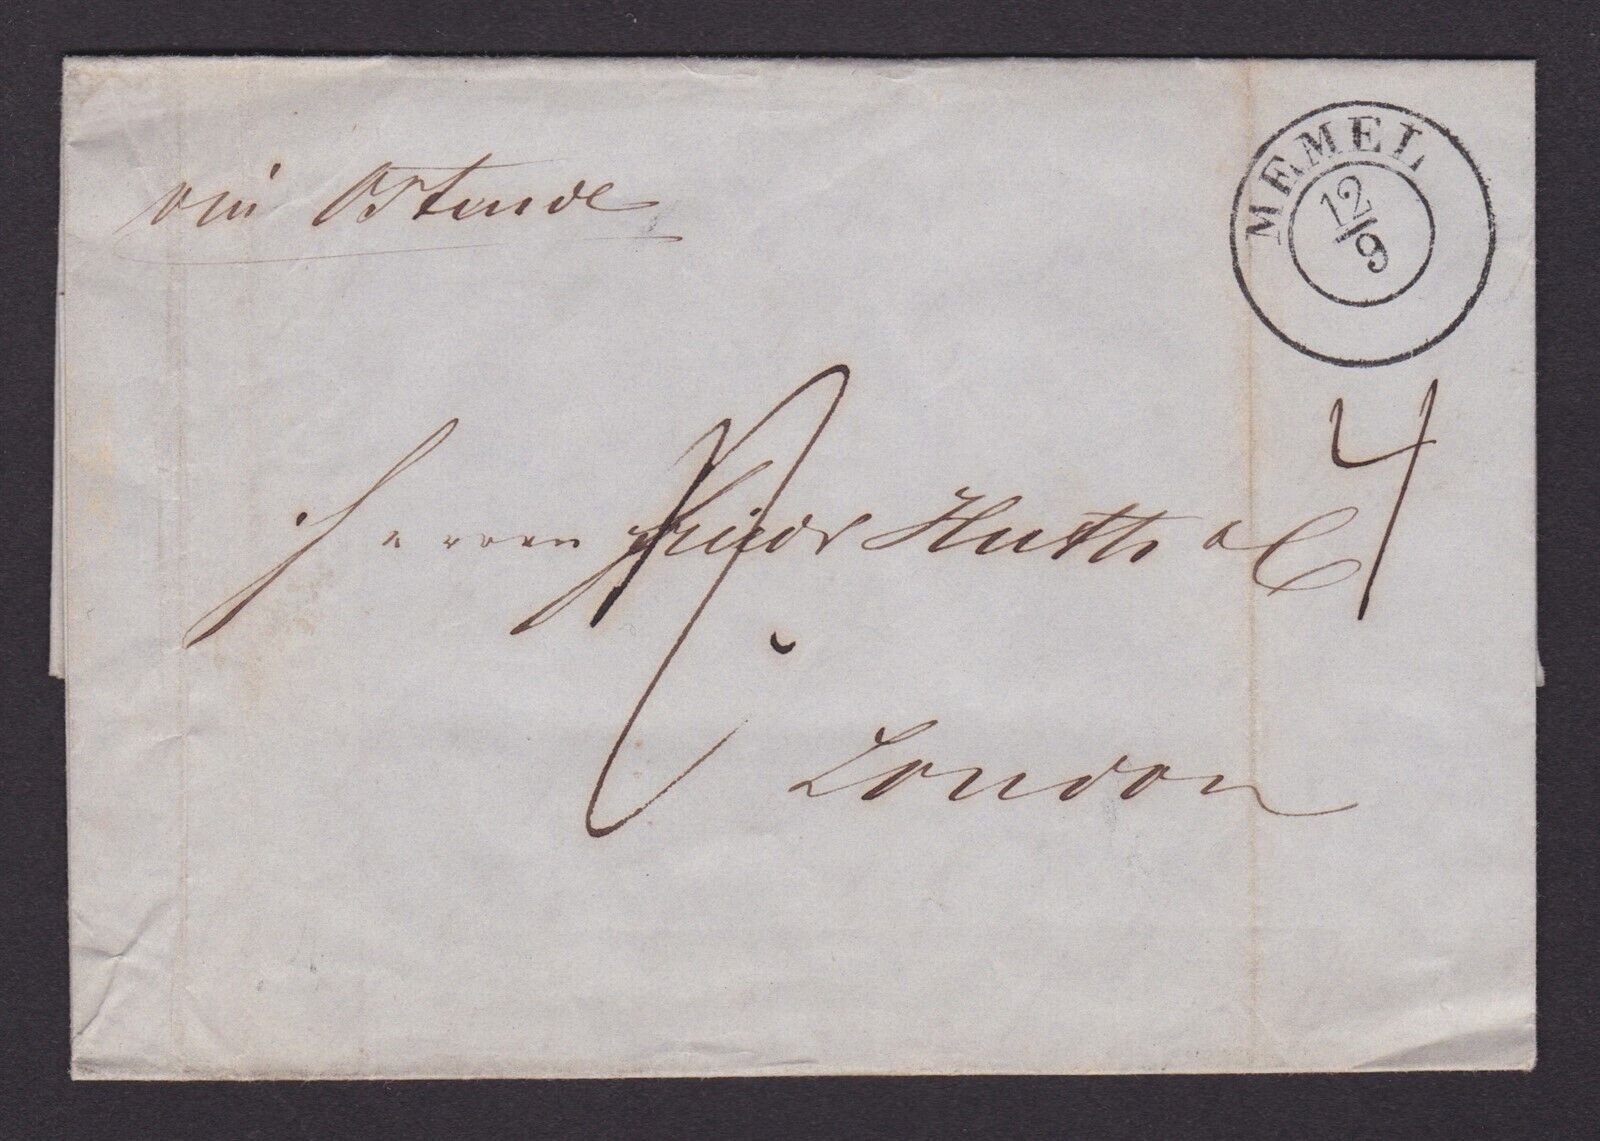 via Ostende
MEMEL
12/9
4
Herren Friedr Huth & C
London